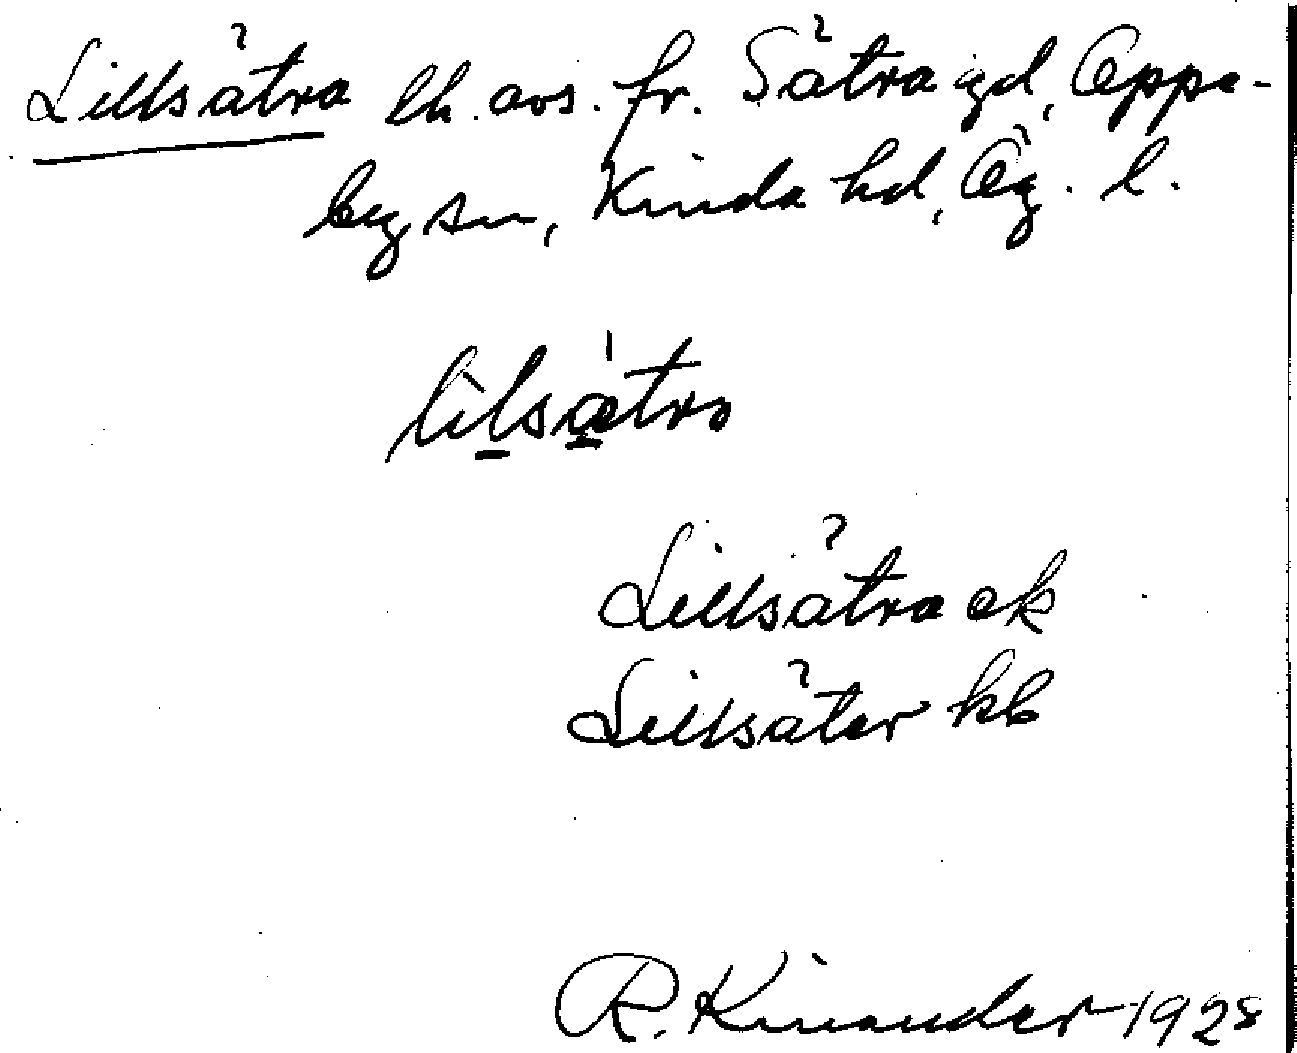 Lillsätra lh. avs. fr. Sätra gd, Oppe-
by sn, Kinda hd, Ög. l.
lìlsǽtra
Lillsätra ek
Lillsäter kb
R. Kinander 1928